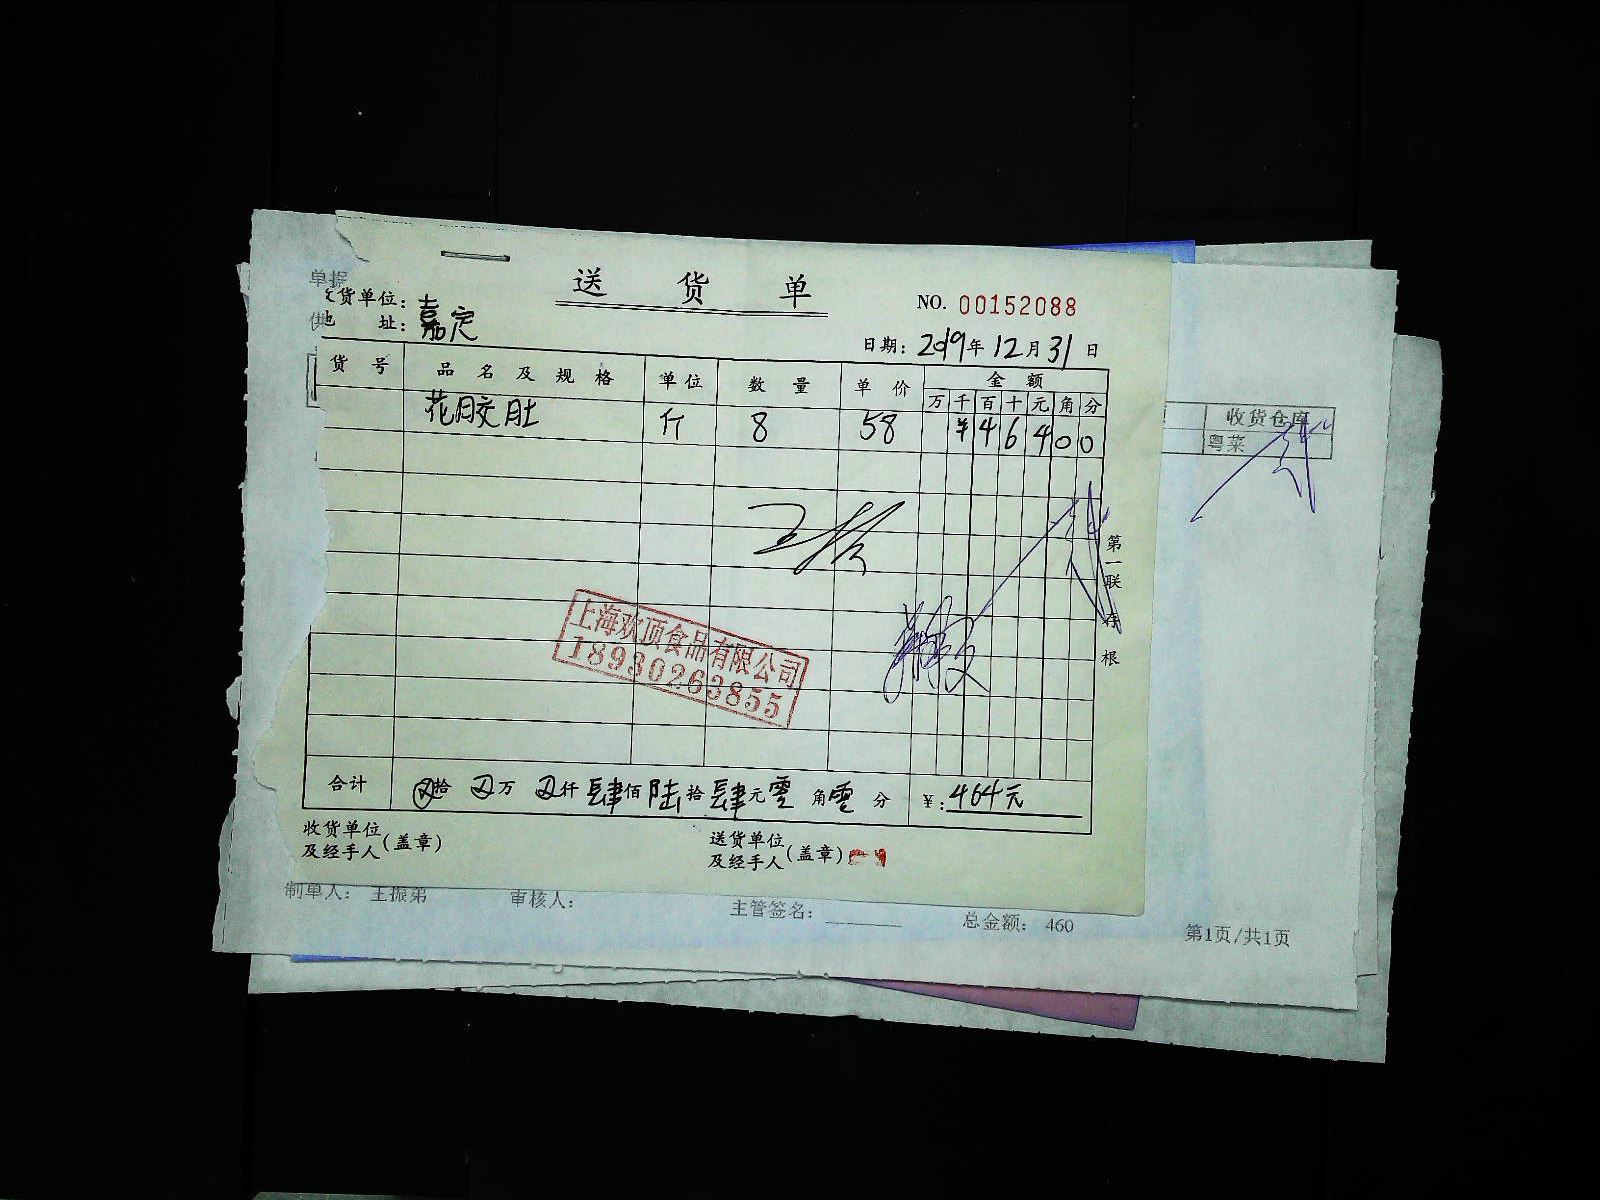 送货单
单据
收货单位:
NO. 00152088
供
地 址: 嘉定
日期: 2019年12月31日
货号 品名及规格 单位 数量 单价 金额
万 千 百 十 元 角 分
花胶肚 斤 8 58 ¥46400
收货仓库
粤菜
第一联 存根
上海欢顶食品有限公司
18930263855
合计 拾 万 仟 肆佰陆拾肆元零角零分 ¥: 464元
收货单位及经手人(盖章)
送货单位及经手人(盖章)
制单人: 王振弟 审核人: 主管签名: 总金额: 460
第1页/共1页